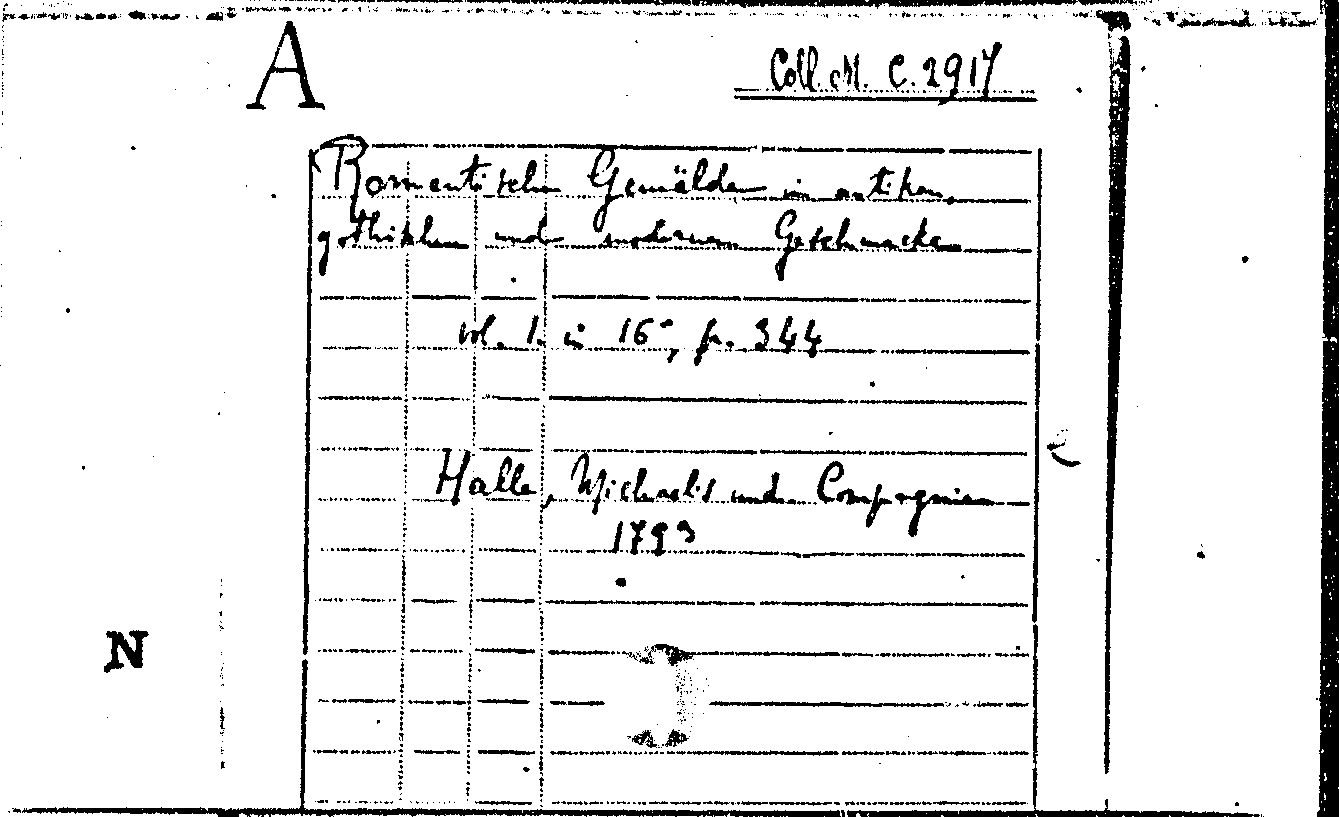 A
Coll. M. C. 2917
Romantischen Gemälden in antiken,
gothischen und modernen Geschmacke
vol. 1. in 16°, p. 344
Halle, Michaelis und Compagnien
1793
N